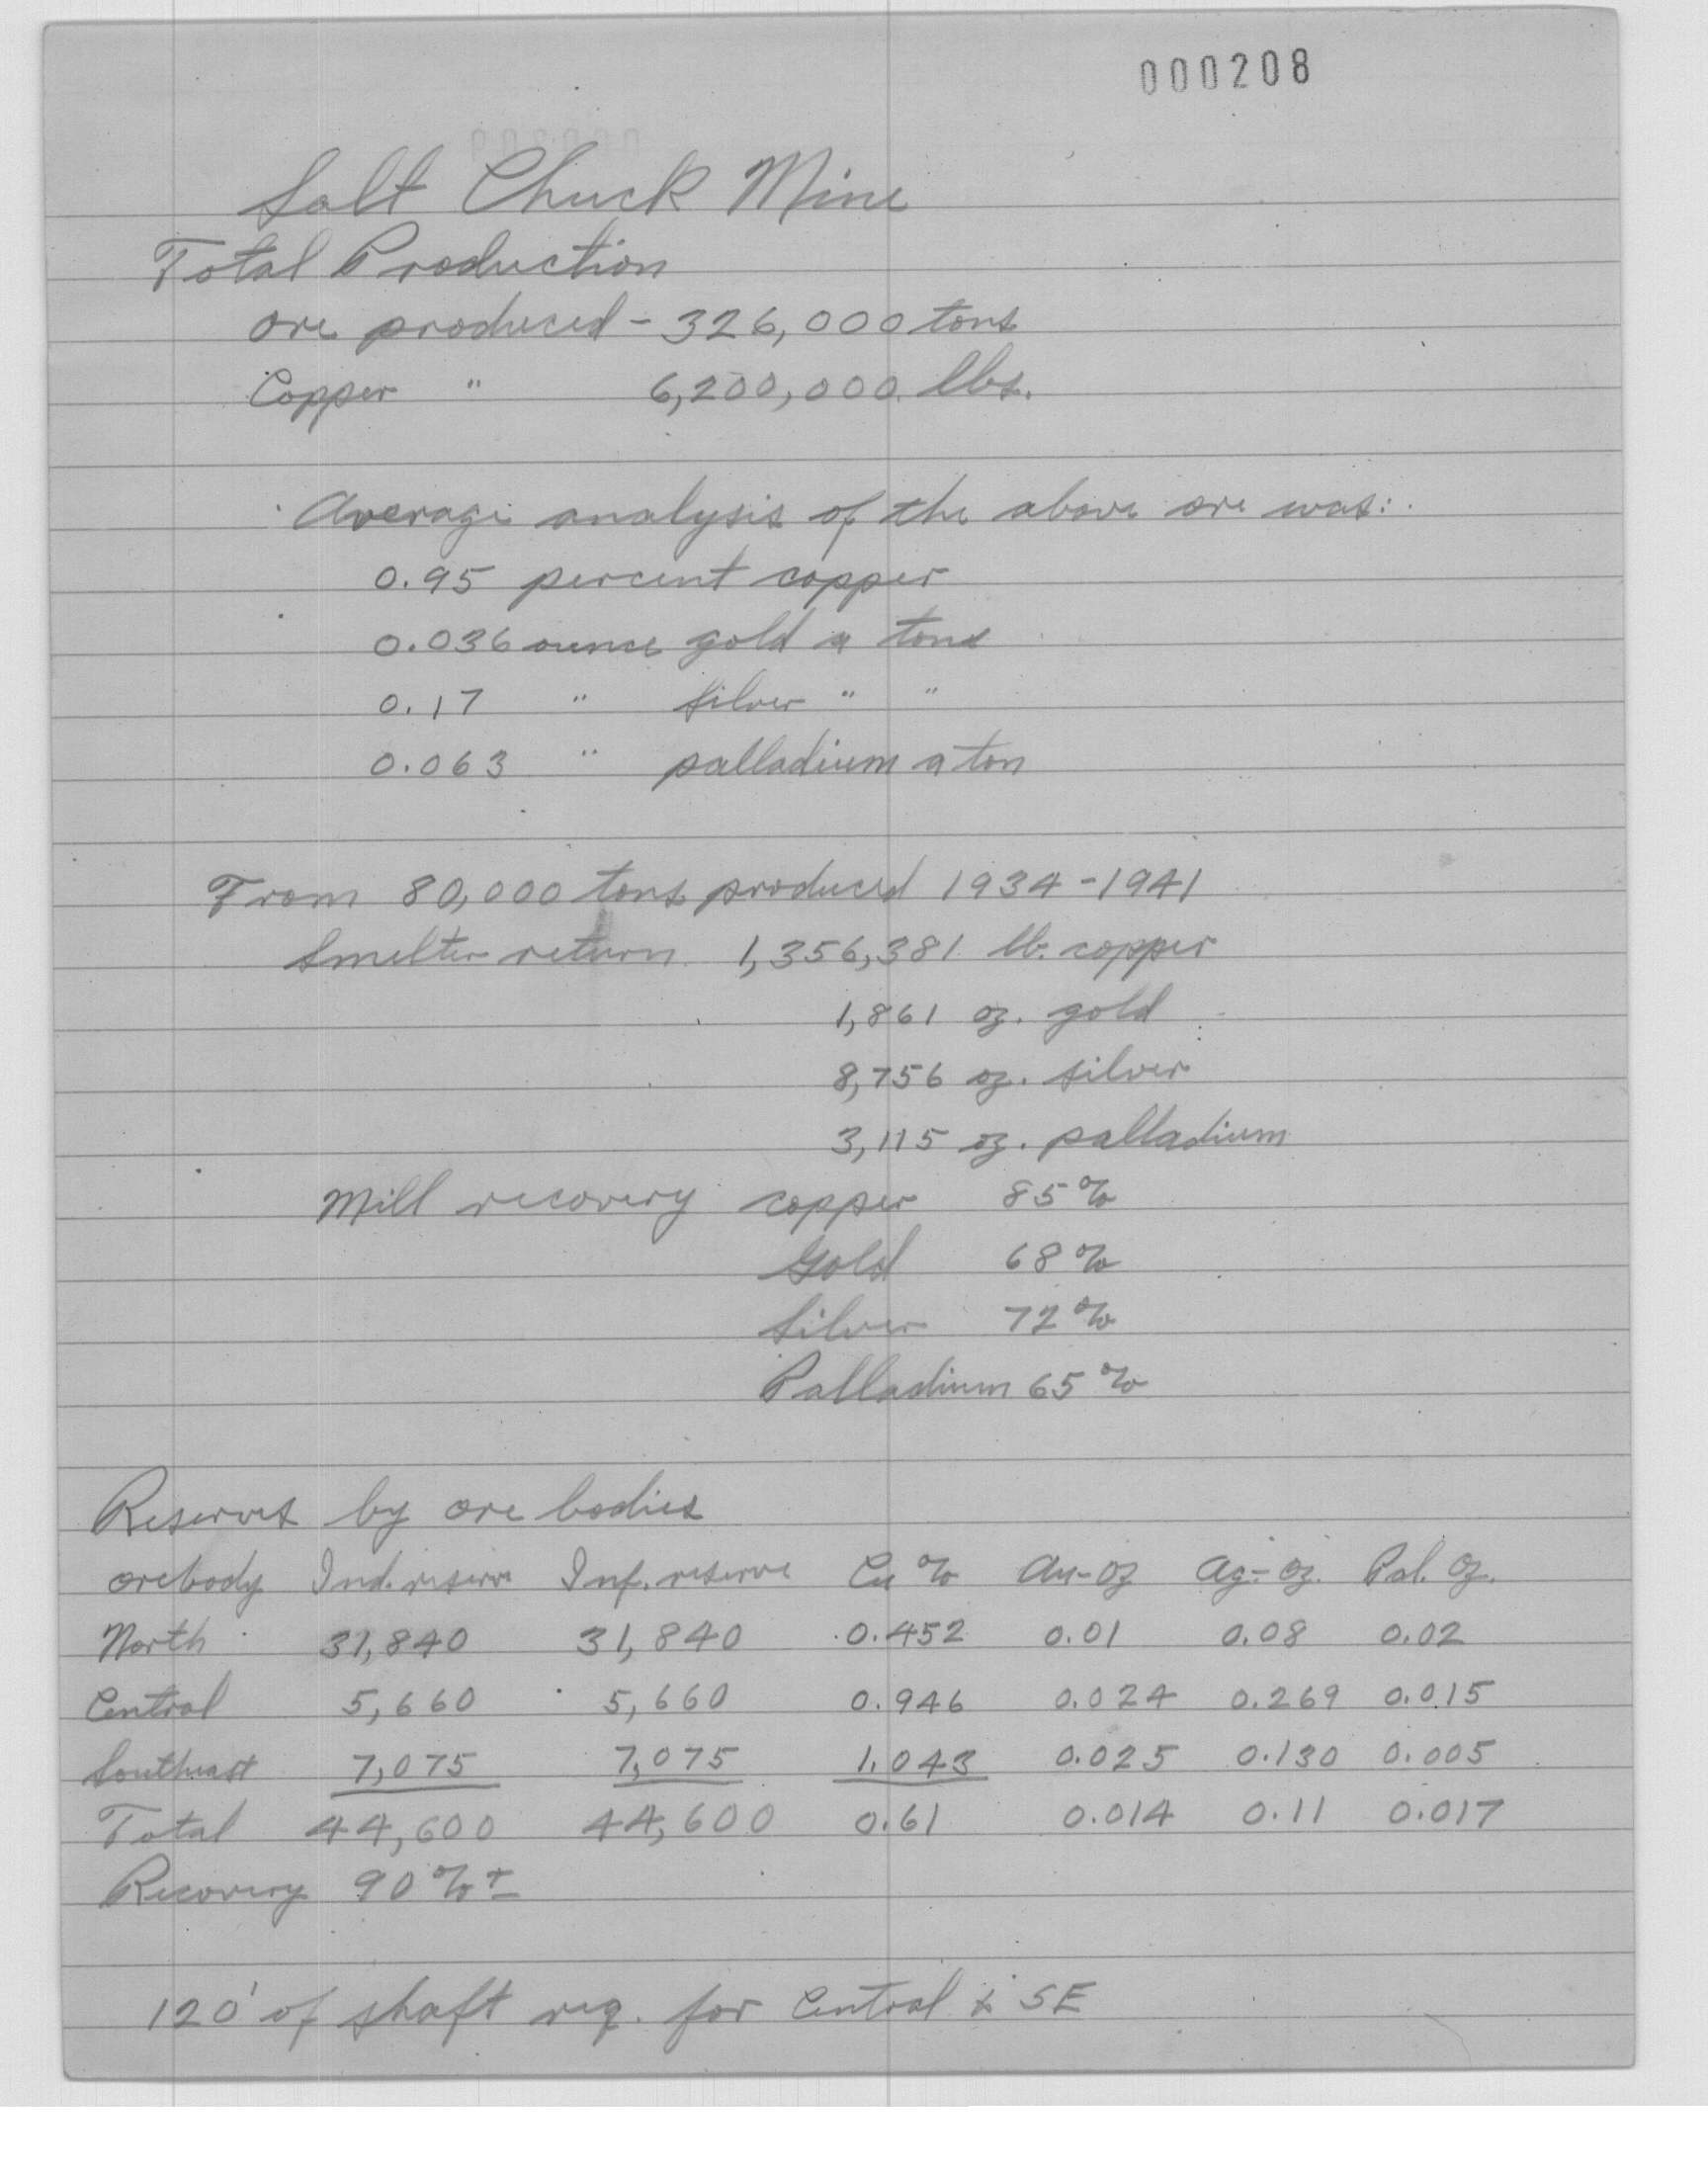 000208
Salt Chuck Mine
Total Production
Ore produced - 326,000 tons
Copper " 6,200,000 lbs.
Average analysis of the above ore was:
0.95 percent copper
0.036 ounces gold a tons
0.17 " silver " "
0.063 " palladium a ton
From 80,000 tons produced 1934-1941
Smelter return 1,356,381 lb. copper
1,861 oz. gold
8,756 oz. silver
3,115 oz. palladium
Mill recovery copper 85%
Gold 68%
Silver 72%
Palladium 65%
Reserves by ore bodies
orebody Ind. reserve Inf. reserve Cu % Au-oz Ag-oz. Pal. oz.
North 31,840 31,840 0.452 0.01 0.08 0.02
Central 5,660 5,660 0.946 0.024 0.269 0.015
Southeast 7,075 7,075 1.043 0.025 0.130 0.005
Total 44,600 44,600 0.61 0.014 0.11 0.017
Recovery 90% ±
120' of shaft req. for Central & SE